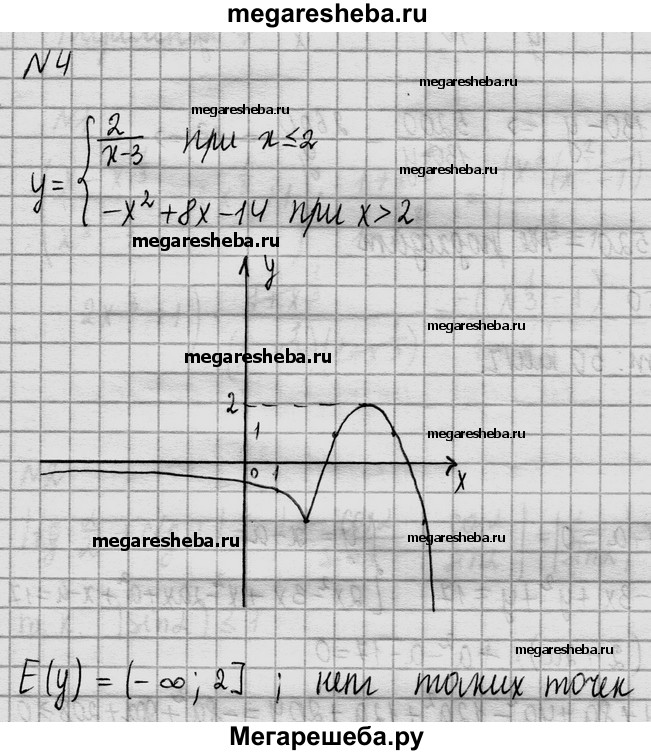 megaresheba.ru
N4
megaresheba.ru
megaresheba.ru
2/(x-3) при x≤2
megaresheba.ru
y = {
-x² + 8x - 14 при x > 2
megaresheba.ru
megaresheba.ru
y
megaresheba.ru
megaresheba.ru
2
1
megaresheba.ru
0 1 x
megaresheba.ru
megaresheba.ru
megaresheba.ru
E(y) = (-∞; 2] ; нет таких точек
Мегарешеба.ру